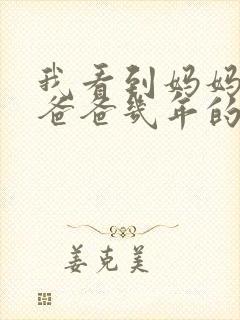 我看到妈妈
爸爸几年的
姜克美